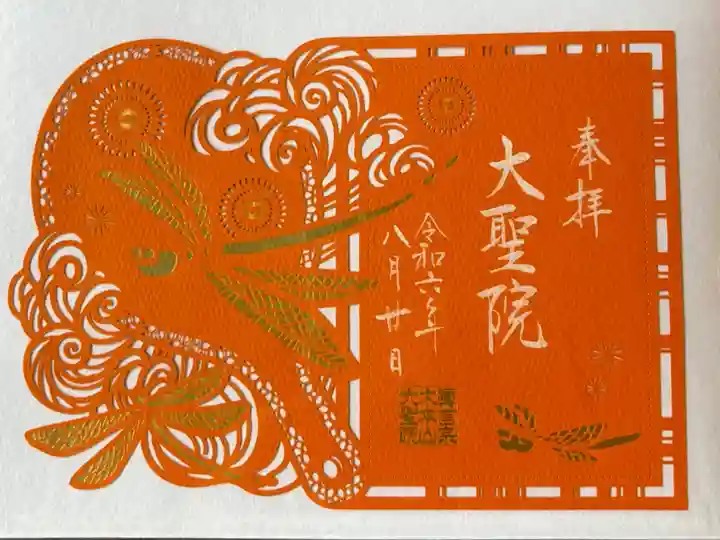 奉拝
大聖院
令和六年
八月廿日